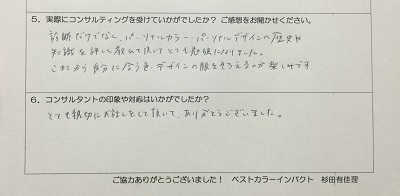 5. 実際にコンサルティングを受けていかがでしたか? ご感想をお聞かせください。
診断だけでなく、パーソナルカラー・パーソナルデザインの歴史や
知識を詳しく教えて頂いてとても勉強になりました。
これから自分に合う色・デザインの服をそろえるのが楽しみです
6. コンサルタントの印象や対応はいかがでしたか?
とても親切にお話しをして頂いて、ありがとうございました。
ご協力ありがとうございました! ベストカラーインパクト 杉田有佳理